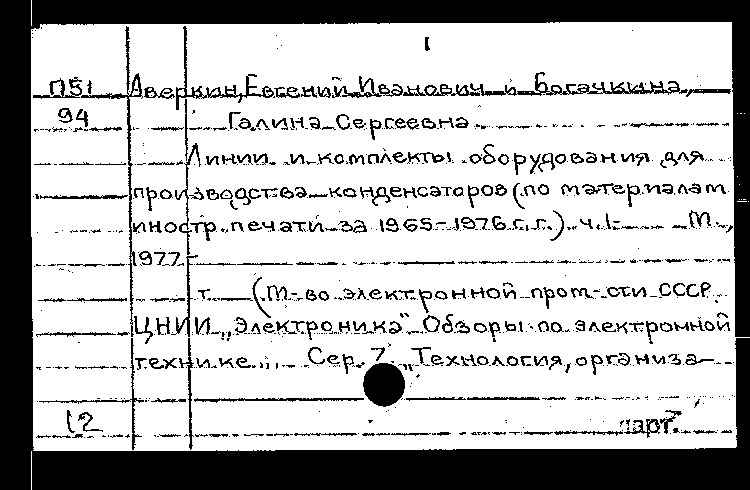 1
П51 Аверкин, Евгений Иванович и Богачкина,
94 Галина Сергеевна.
Линии и комплекты оборудования для
производства конденсаторов (по материалам
иностр. печати за 1965-1976 г.г.) ч.1- М.,
1977-
т (М-во электронной пром-сти СССР.
ЦНИИ „Электроника" Обзоры по электронной
технике... Сер. 7. „Технология, организа-
12